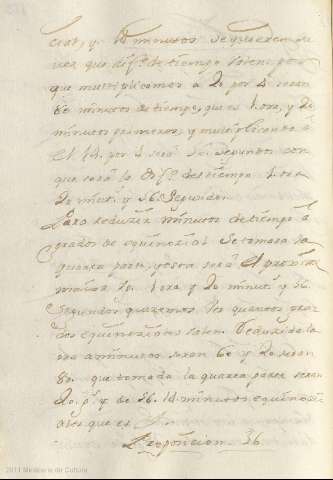 cial, y 14 minutos se quiere sa
ver que dif.ª de tiempo tienen por
que multiplicamos a 20 por 4 seran
80 minutos de tiempo, que es 1 ora, y 20
minutos primeros, y multiplicando a
el 14 por 4 será 56 segundos con
que será la dif.ª del tiempo 1 ora
20 minut.ˢ y 56 segundos.
Para reduzir minutos de tiempo a
grados de equinocial se tomara la
quarta parte, y esta será el
1 ora y 20 minut.ˢ y 56
segundos queremos ver quantos gra
dos equinociales tiene. Reduzida la
ora a minutos seran 60 y 20 seran
80. que tomada la quarta parte seran
20 g.ˢ y de 56. 14 minutos equinoci
ales que es
Proposicion 36
2011 Ministerio de Cultura